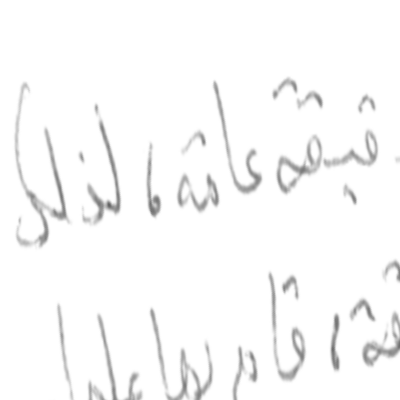 قيقة عامة ، لذلك
قة ، قام بها علما